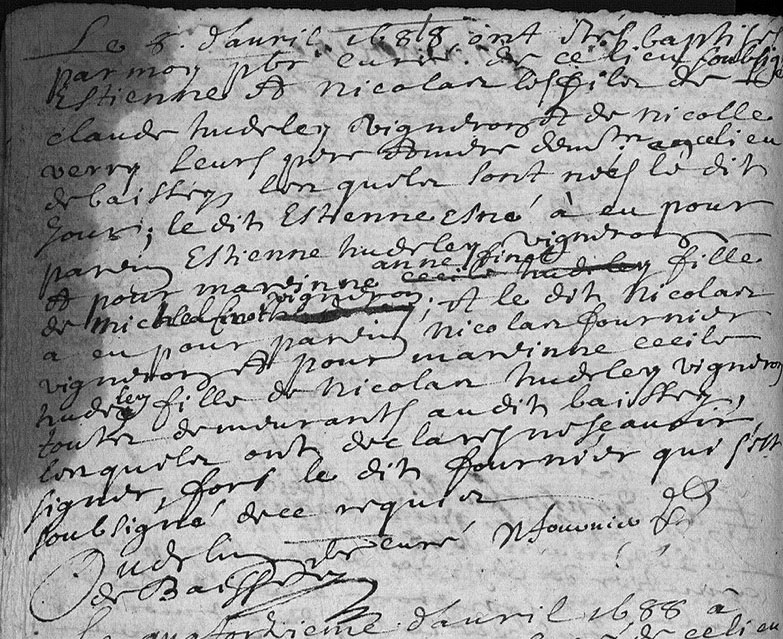 Le 8. d'auril 1688 ont estés baptisés
par moy pbr curé de ce lieu soubsigné
Estienne et Nicolas les filz de
claude hudeley vigneron et de nicolle
verry leurs pere et mere demt. en ce lieu
de baissey, lesquelz sont nés le dit
jour; le dit Estienne esné à eu pour
parein Estienne hudeley vigneron
et pour mareinne anne finot fille
de michel finot vigneron; et le dit Nicolas
a eu pour parein Nicolas fournier
vigneron et pour mareinne cecile
hudeley fille de Nicolas hudeley vigneron
toutes demeurants au dit baissey,
lesquelz ont declarez ne scauoir
signer, fors le dit fournier qui s'est
soubsigné de ce requis
pbr curé N fournier
de Baissey
Le quatorzieme d'auril 1688 a
de ce lieu